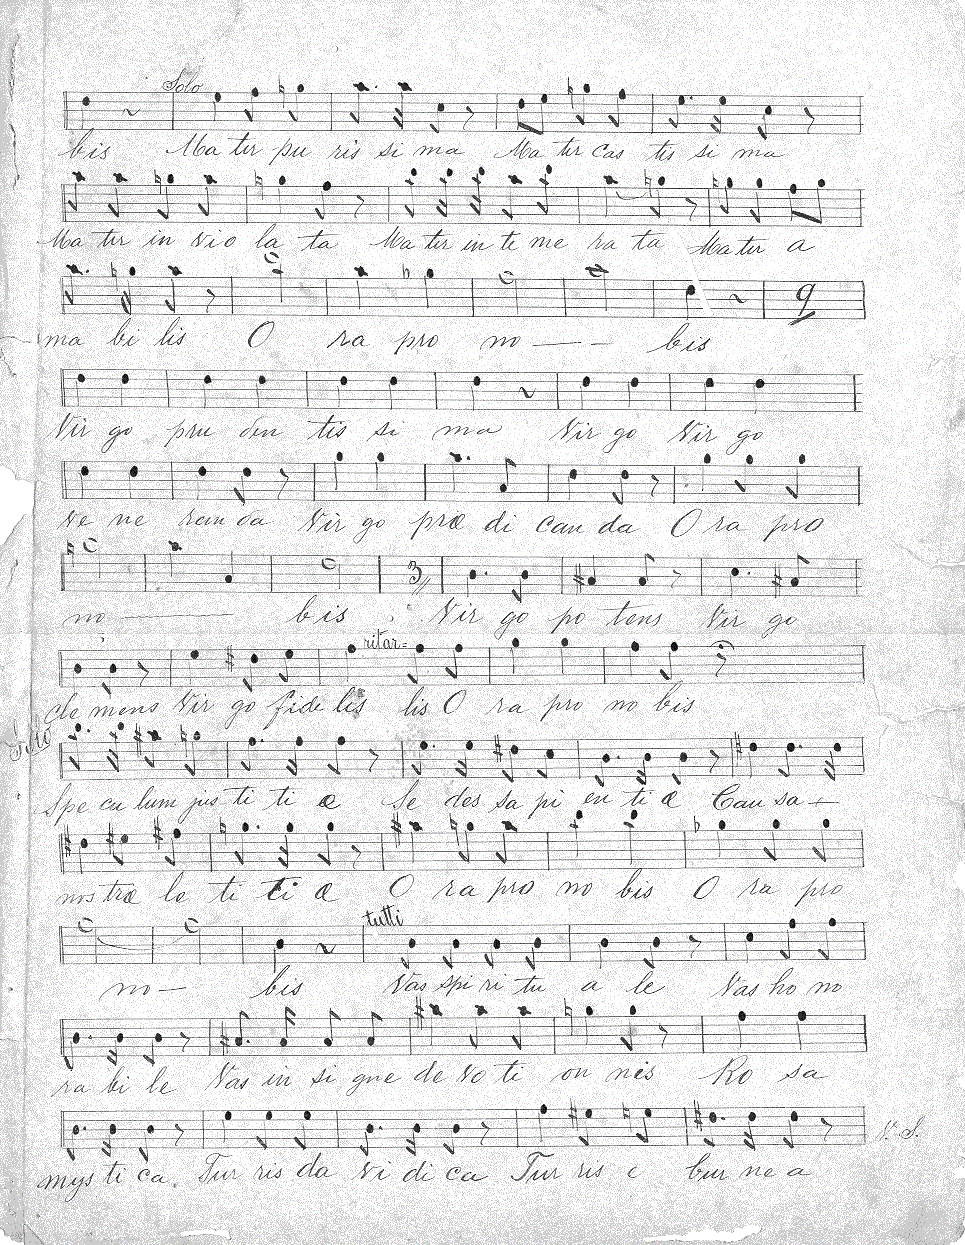 Solo
bis Ma ter pu ris si ma Ma ter cas tis si ma
Ma ter in vio la ta Ma ter in te me ra ta Ma ter a
9
ma bi lis O ra pro no - - bis
Vir go pru den tis si ma Vir go Vir go
ve ne ran da Vir go præ di can da O ra pro
3
no - bis Vir go po tens Vir go
ritar=
cle mens Vir go fide lis lis O ra pro no bis
Solo
Spe cu lum jus ti ti æ Se des sa pi en ti æ Cau sa
nos træ le ti ti æ O ra pro no bis O ra pro
tutti
no - bis Vas spi ri tu a le Vas ho no
ra bi le Vas in si gne de vo ti on nes Ro sa
V. S.
mys ti ca. Tur ris da vi di ca Tur ris e bur ne a